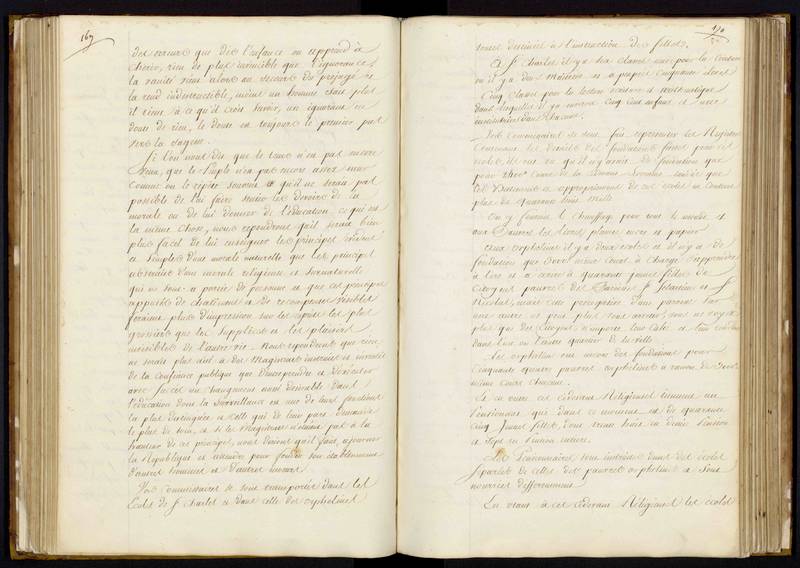 169
des erreurs que dès l'enfance on apprend à
chérir, rien de plus invincible que l'ignorance
la vanité vient alors au secours du préjugé et
la rend indestructible, moins un homme sait plus
il tient à ce qu'il croit savoir, un ignorant ne
doute de rien, le doute est toujours le premier pas
vers la sagesse.
Si l'on nous dit que le tems n'en pas encore
venu, que le peuple n'en pas encore assez mur
comme on le repète souvent et qu'il ne serait pas
possible de lui faire sentir les devoirs de la
morale ou de lui donner de l'éducation, ce qui est
la même chose, nous repondrons qu'il serait bien
plus facile de lui enseigner les principes
et simples d'une morale naturelle que les principes
abstraits d'une morale religieuse et surnaturelle
qui ne sont à portée de personne et que ces principes
appuyés de chatimens et de recompenses visibles
feraient plus d'impression sur les esprits les plus
grossiers que les supplices et les plaisirs
invisibles de l'autre vie. Nous repondrons que rien
ne serait plus aisé à des Magistrats instruits et investis
de la confiance publique que d'entreprendre et d'exécuter
avec succès un changement aussi desirable dans
l'éducation dont la surveillance est une de leurs fonctions
la plus distinguée et celle qui de leur part demande
le plus de soin, et si les Magistrats n'étaient pas à la
hauteur de ces principes, nous dirions qu'il faut ajourner
la République et attendre pour fonder son établissement
d'autres hommes et d'autres moeurs.
Vos commissaires se sont transportés dans les
Ecoles de St Charles et dans celles des orphelines
170
toutes destinées à l'instruction des filles.
A St Charles il y a six classes une pour la couture
où il y a deux maîtresses et à peuprès cinquante élèves
Cinq classes pour la lecture écriture et arithmetique
dans lesquelles il y a environ cinq cens enfans et une
institutrice dans chacune.
Vos commissaires se sont fait representer les Registres
contenant les détails des fondations faites pour ces
écoles, ils ont vu qu'il n'y avait de fondations que
pour
les Batimens et appropriement de ces écoles en coutent
plus de quarante trois mille
On y fournit le chauffage pour tout le monde et
aux Pauvres les livres plumes encre et papier
aux orphelines il y a deux écoles et il y a de
fondation que mème Cours à charge d'apprendre
à lire et à écrire à quarante jeunes filles de
citoyens pauvres des Paroisses St Sebastien et St
Nicolas, mais cette perception d'une paroisse sur
une autre ne peut plus avoir lieu, vous ne voyez
plus que des Citoyens n'importe leur culte et leur
dans l'un ou l'autre quartier de la ville.
Les orphelines ont encore des fondations pour
cinquante quatre pauvres orphelines à raison de
mème Cours chacune.
Et en outre ces cidevant Religieuses tiennent un
Pensionnat qui dans ce moment est de quarante
cinq jeunes filles, dont trente huit en demie Pension
et sept en Pension entiere.
Les Pensionnaires sont instruites dans des écoles
separées de celles des pauvres orphelines et sont
nourries differemment
En otant à ces cidevant Religieuses les écoles